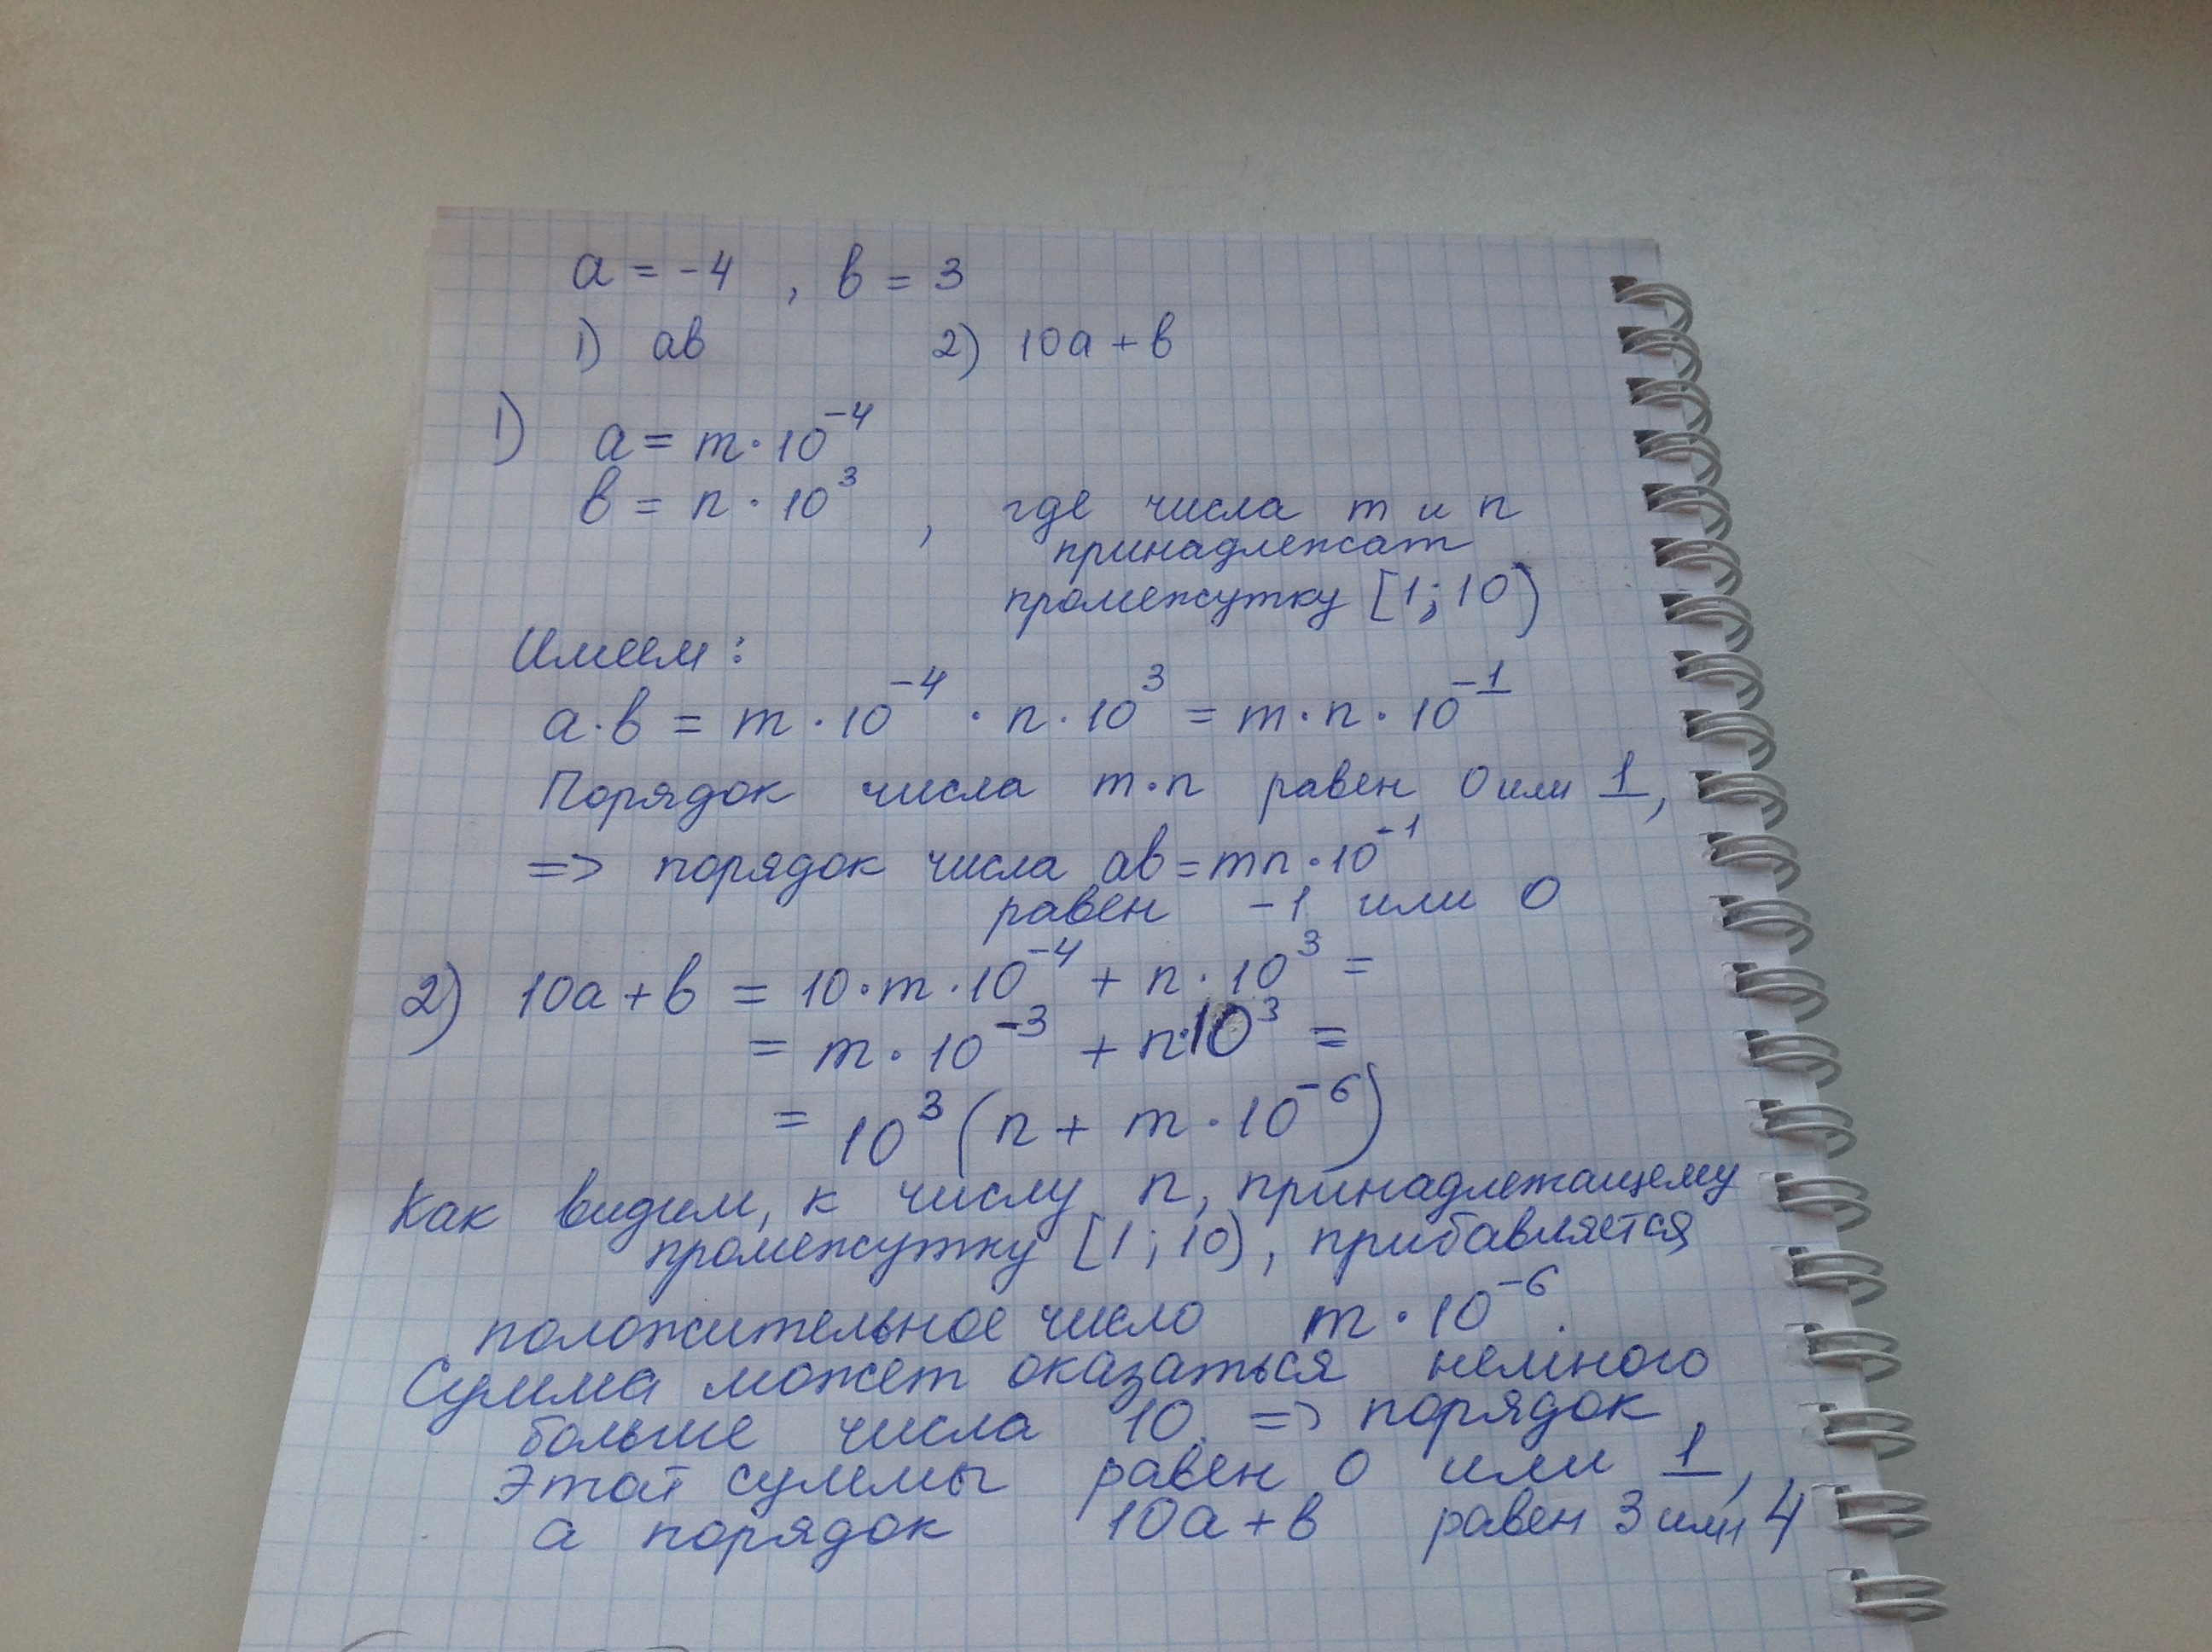 a = -4 , в = 3
1) aв 2) 10a + в
1) a = m · 10⁻⁴
в = n · 10³ , где числа m и n
принадлежат
промежутку [1; 10)
Имеем:
a · в = m · 10⁻⁴ · n · 10³ = m · n · 10⁻¹
Порядок числа m · n равен 0 или 1,
=> порядок числа aв = mn · 10⁻¹
равен -1 или 0
2) 10a + в = 10 · m · 10⁻⁴ + n · 10³ =
= m · 10⁻³ + n · 10³ =
= 10³ (n + m · 10⁻⁶)
Как видим, к числу n, принадлежащему
промежутку [1; 10), прибавляется
положительное число m · 10⁻⁶.
Сумма может оказаться немного
больше числа 10. => порядок
этой суммы равен 0 или 1,
а порядок 10a + в равен 3 или 4